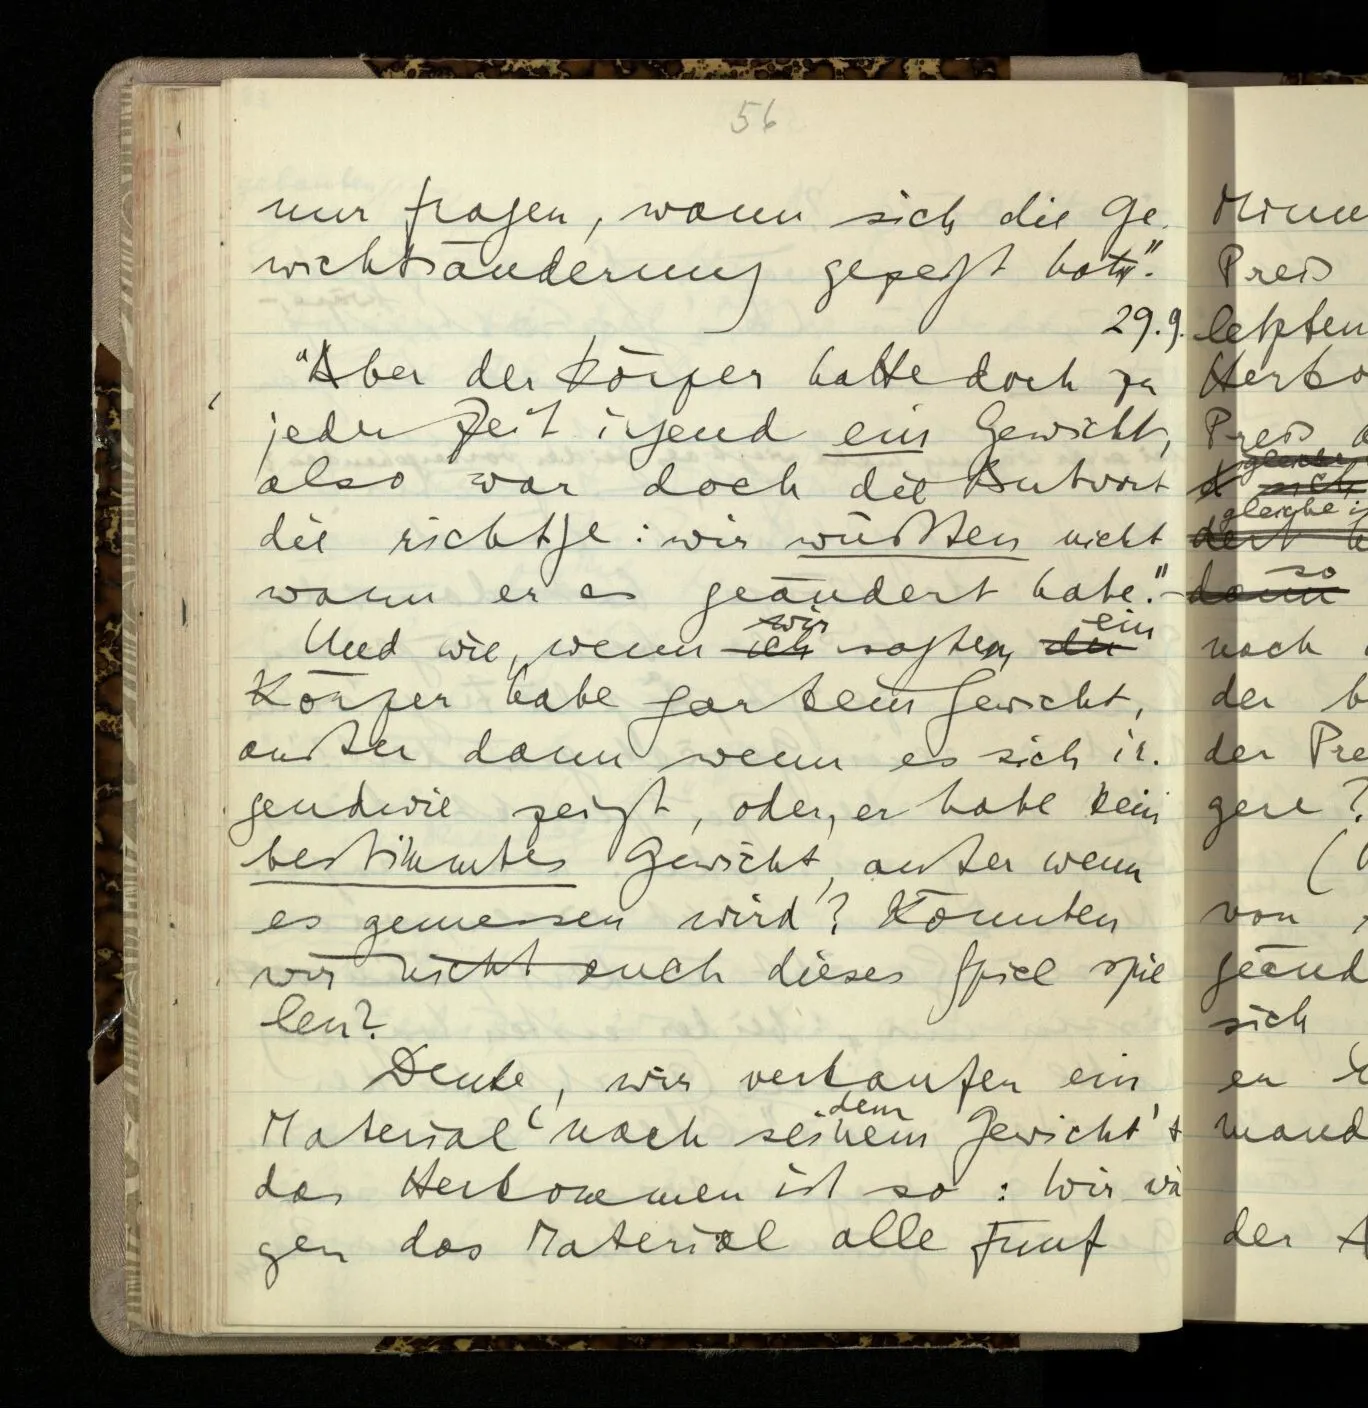 56
nur fragen, wann sich die Ge-
wichtsänderung gezeigt hat".
29.9.
"Aber der Körper hatte doch zu
jeder Zeit irgend ein Gewicht,
also war doch die Antwort
die richtige: wir wüßten nicht
wann er es geändert habe." –
Und wie, wenn ich wir sagten, der ein
Körper habe gar kein Gewicht,
außer dann wenn es sich ir-
gendwie zeigt, oder, er habe kein
bestimmtes Gewicht, außer wenn
es gemessen wird'? Könnten
wir nicht auch dieses Spiel spie
len?
Denke, wir verkaufen ein
Material 'nach seinem dem Gewicht' &
das Herkommen ist so: Wir wä
gen das Material alle fünf
Preis
letzten
Preis
gleiche
sich
gleiche
dann so
noch
der
der
gere?
von
geänd
sich
en
mand
der